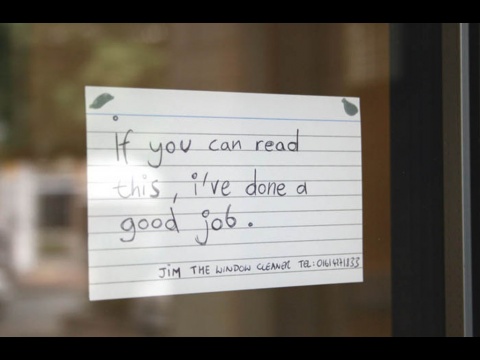 if you can read
this, i've done a
good job.
JIM THE WINDOW CLEANER TEL: 01614171833